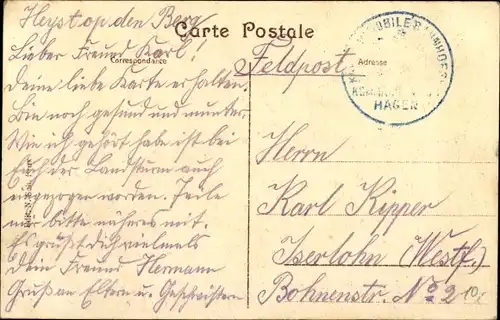 Heyst op den Berg
Carte Postale
Lieber Freund Karl!
Correspondance
Feldpost
Adresse
MOBILE BAHNHOFS
HAGEN
Deine liebe Karte erhalten.
Bin noch gesund und munter.
Wie ich gehört habe ist bei
Euch der Landsturm auch
eingezogen worden. Teile
mir bitte näheres mit.
Es grüßt Dich vielmals
Dein Freund Hermann
Gruß an Eltern u. Geschwistern
Herrn
Karl Kipper
Iserlohn (Westf.)
Bohnenstr. No 2